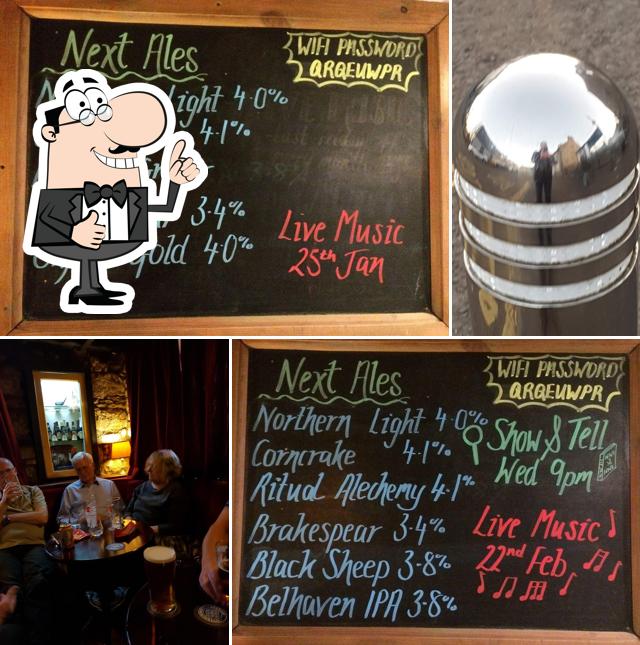 Next Ales
WIFI PASSWORD
QRQEUWPR
Light 4.0%
4.1%
3.4%
Gold 4.0%
Live Music
25th Jan
Next Ales
WIFI PASSWORD
QRQEUWPR
Northern Light 4.0%
Corncrake 4.1%
Ritual Alechemy 4.1%
Brakespear 3.4%
Black Sheep 3.8%
Belhaven IPA 3.8%
Show & Tell
Wed 9pm
Live Music
22nd Feb